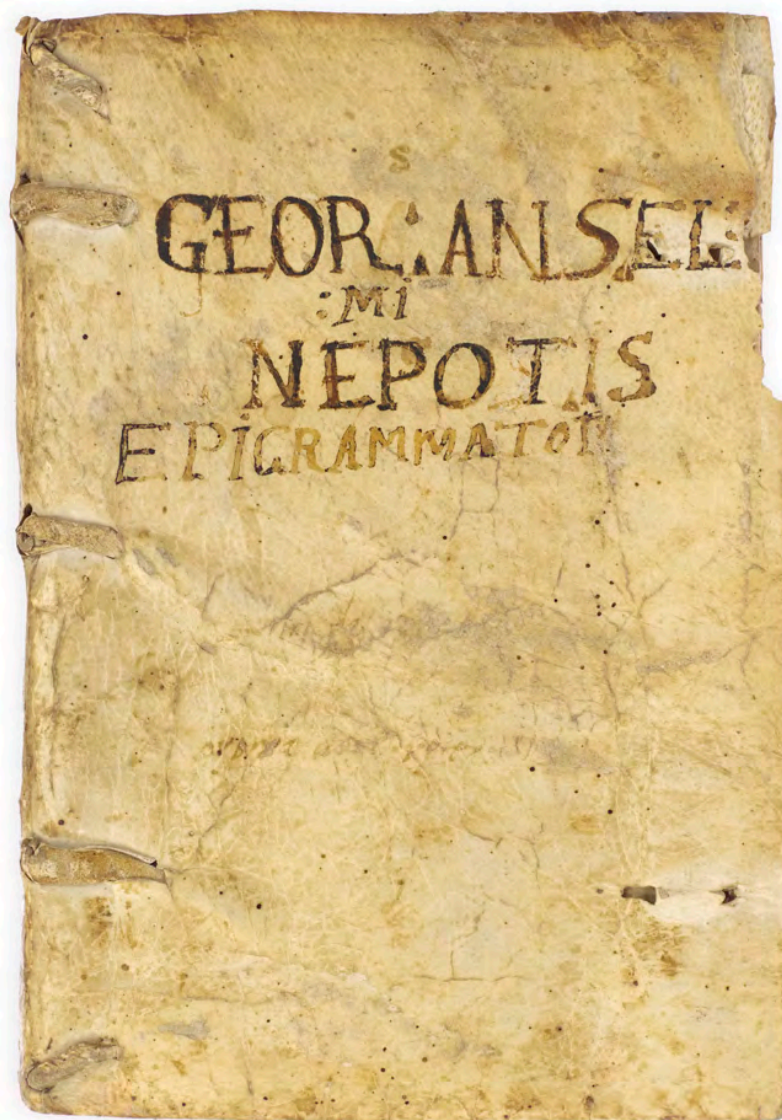 S
GEOR:ANSEL:
:MI
NEPOTIS
EPIGRAMMATON